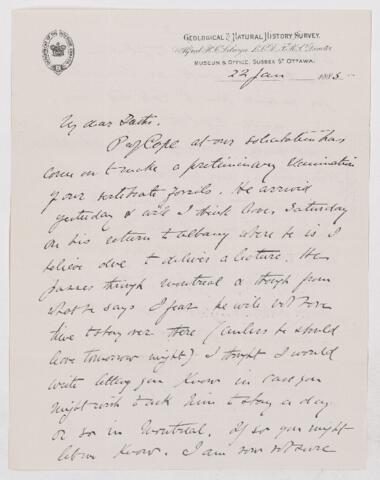 GEOLOGICAL & NATURAL HISTORY SURVEY.
Alfred R. C. Selwyn LL.D. F.R.S. Director
MUSEUM & OFFICE, SUSSEX ST OTTAWA.
22 Jan 1885
My dear Father.
Prof Cope at our solicitation has
come on to make a preliminary examination
of our vertebrate fossils. He arrived
yesterday & will I think leave Saturday
on his return to Albany where he is I
believe due to deliver a lecture. He
passes through Montreal & though from
what he says I fear he will not have
time to stay over there (unless he should
leave tomorrow night) I thought I would
write letting you know in case you
might wish to ask him to stay a day
or so in Montreal. If so you might
let me know. I am now not sure